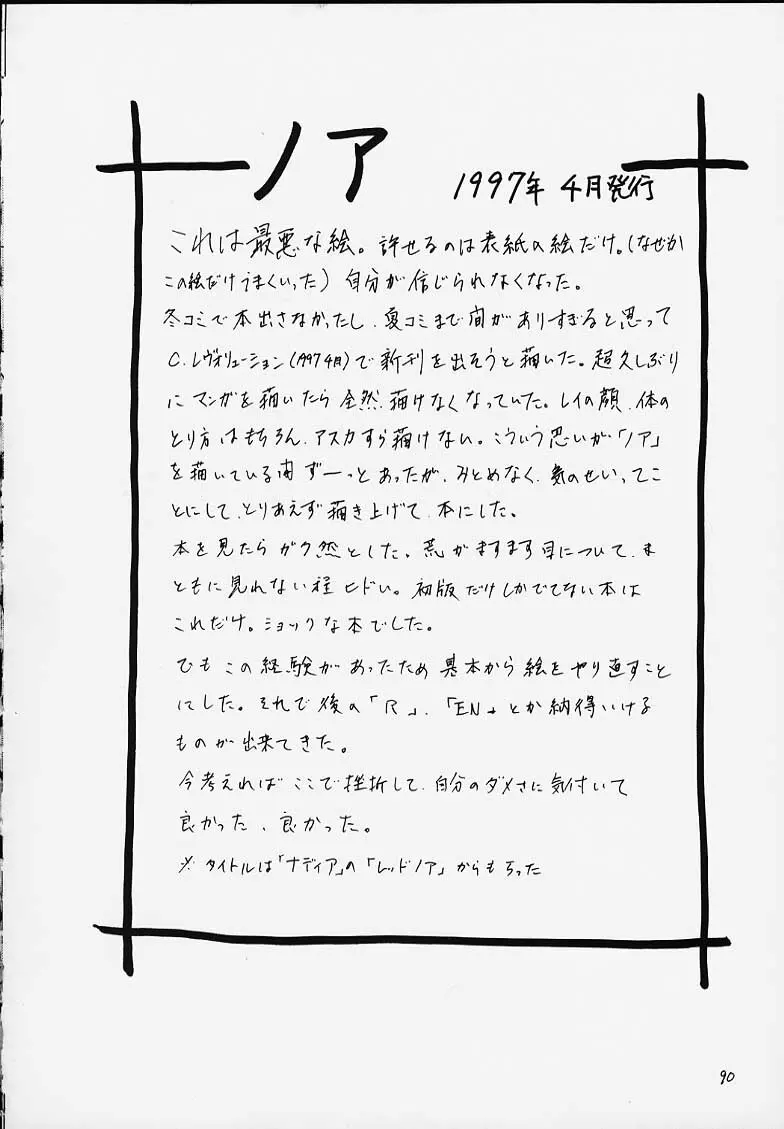 ノア
1997年 4月発行
これは最悪な絵。許せるのは表紙の絵だけ。(なぜか
この絵だけうまくいった) 自分が信じられなくなった。
冬コミで本出さなかったし、夏コミまで間がありすぎると思って
C.レヴォリューション(1997 4月)で新刊を出そうと描いた。超久しぶり
にマンガを描いたら全然描けなくなっていた。レイの顔、体の
とり方はもちろん、アスカすら描けない。こういう思いが「ノア」
を描いている間ずーっとあったが、みとめなく、気のせいってこ
とにして、とりあえず描き上げて、本にした。
本を見たらガク然とした。荒がますます目について、ま
ともに見れない程ヒドい。初版だけしかでてない本は
これだけ。ショックな本でした。
でもこの経験があったため基本から絵をやり直すこと
にした。それで後の「R」、「EN」とか納得いける
ものが出来てきた。
今考えればここで挫折して、自分のダメさに気付いて
良かった、良かった。
※タイトルは「ナディア」の「レッドノア」からもらった
90